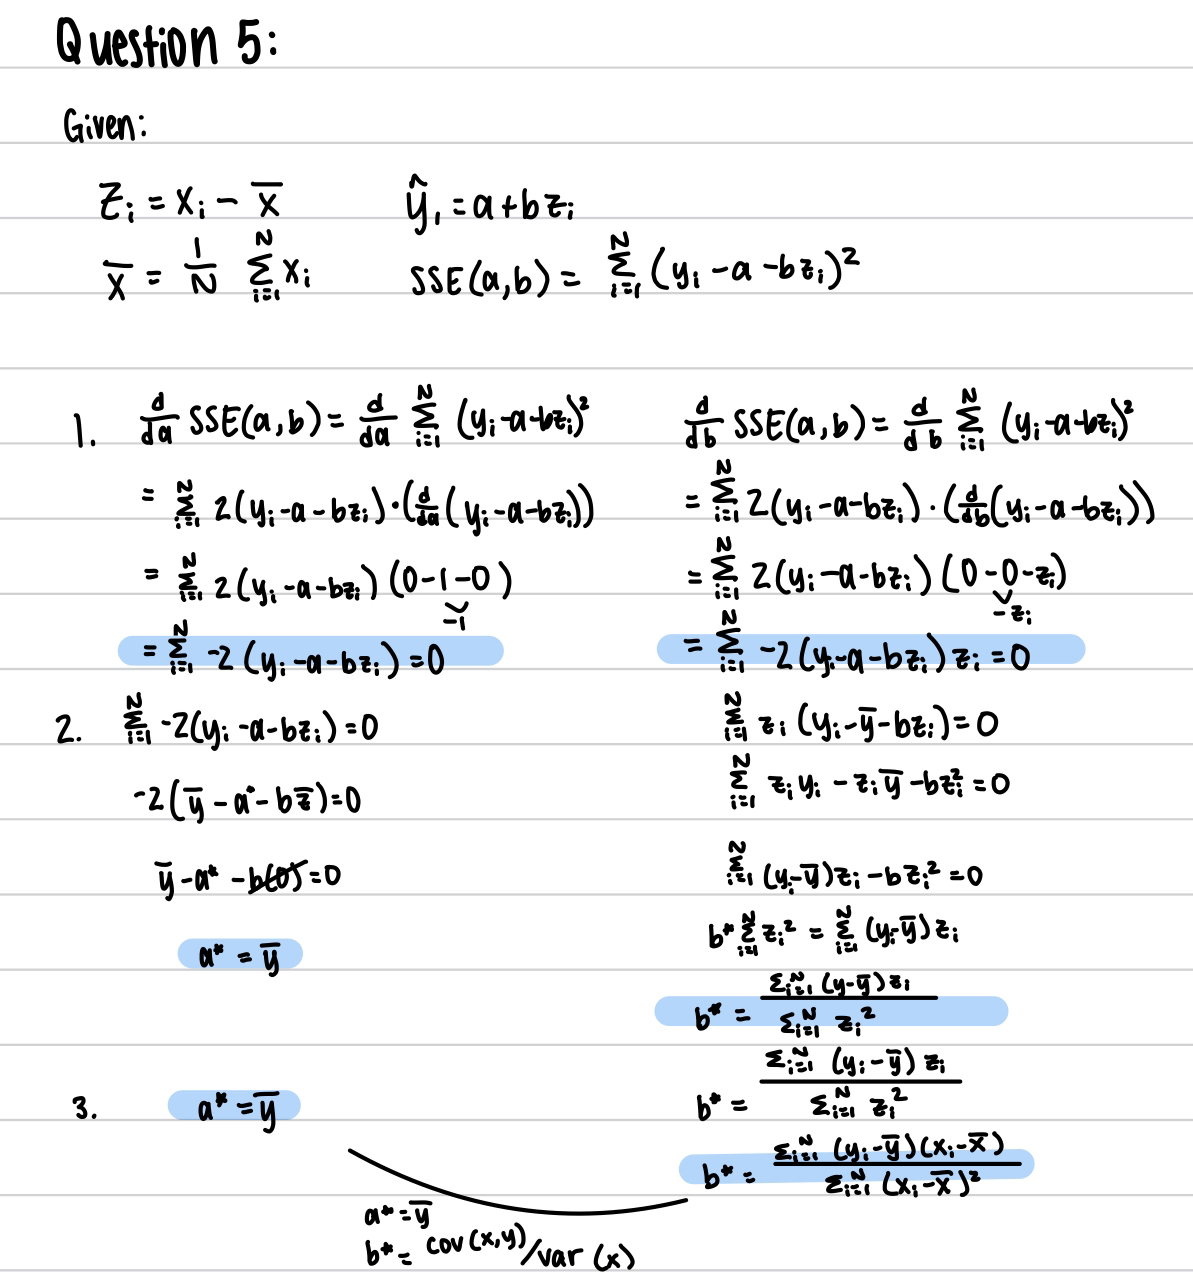 Question 5:
Given:
z_i = x_i - x̄    ŷ_1 = a + bz_i
x̄ = 1/N Σ_{i=1}^N x_i    SSE(a,b) = Σ_{i=1}^N (y_i - a - bz_i)²
1. d/da SSE(a,b) = d/da Σ_{i=1}^N (y_i - a - bz_i)²
= Σ_{i=1}^N 2(y_i - a - bz_i)·(d/da(y_i - a - bz_i))
= Σ_{i=1}^N 2(y_i - a - bz_i)(0-1-0)
-1
= Σ_{i=1}^N -2(y_i - a - bz_i) = 0
d/db SSE(a,b) = d/db Σ_{i=1}^N (y_i - a - bz_i)²
= Σ_{i=1}^N 2(y_i - a - bz_i)·(d/db(y_i - a - bz_i))
= Σ_{i=1}^N 2(y_i - a - bz_i)(0-0-z_i)
-z_i
= Σ_{i=1}^N -2(y_i - a - bz_i)z_i = 0
2. Σ_{i=1}^N -2(y_i - a - bz_i) = 0
-2(ȳ - a* - bz̄) = 0
ȳ - a* - b(0) = 0
a* = ȳ
Σ_{i=1}^N z_i(y_i - ȳ - bz_i) = 0
Σ_{i=1}^N z_iy_i - z_iȳ - bz_i² = 0
Σ_{i=1}^N (y_i - ȳ)z_i - bz_i² = 0
b* Σ_{i=1}^N z_i² = Σ_{i=1}^N (y_i - ȳ)z_i
b* = Σ_{i=1}^N (y - ȳ)z_i / Σ_{i=1}^N z_i²
3. a* = ȳ
b* = Σ_{i=1}^N (y_i - ȳ)z_i / Σ_{i=1}^N z_i²
b* = Σ_{i=1}^N (y_i - ȳ)(x_i - x̄) / Σ_{i=1}^N (x_i - x̄)²
a* = ȳ
b* = cov(x,y)/var(x)